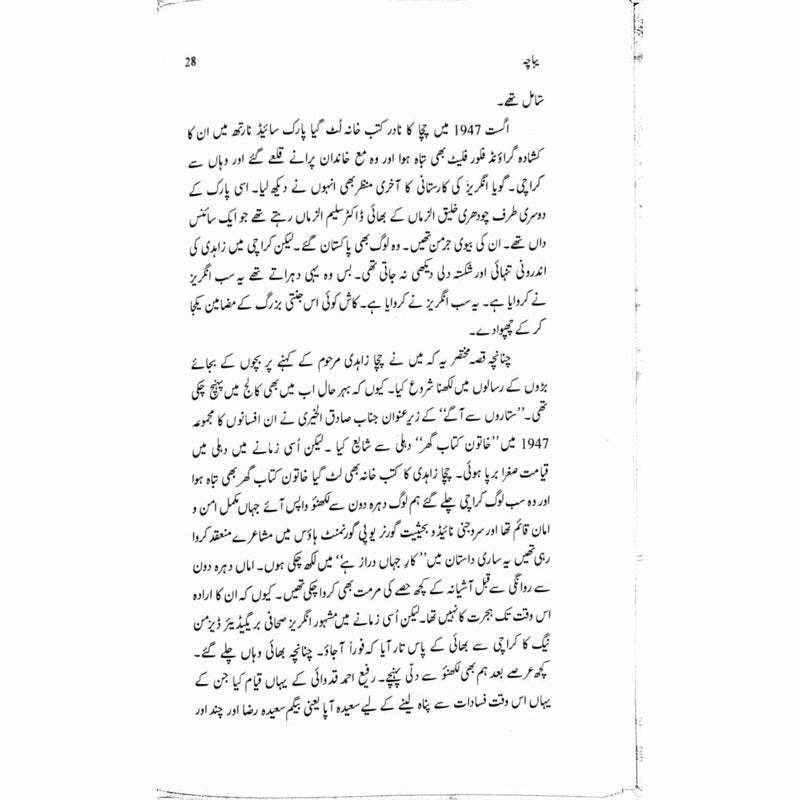 یباچہ 28
شامل تھے۔
اگست 1947 میں چچا کا نادر کتب خانہ لُٹ گیا پارک سائیڈ نارتھ میں ان کا
کشادہ گراؤنڈ فلور فلیٹ بھی تباہ ہوا اور وہ مع خاندان پرانے قلعے گئے اور وہاں سے
کراچی۔ گویا انگریز کی کارستانی کا آخری منظر بھی انہوں نے دیکھ لیا۔ اسی پارک کے
دوسری طرف چودھری خلیق الزماں کے بھائی ڈاکٹر سلیم الزماں رہتے تھے جو ایک سائنس
داں تھے۔ ان کی بیوی جرمن تھیں۔ وہ لوگ بھی پاکستان گئے۔ لیکن کراچی میں زاہدی کی
اندرونی تنہائی اور شکستہ دلی دیکھی نہ جاتی تھی۔ بس وہ یہی دہراتے تھے یہ سب انگریز
نے کروایا ہے۔ یہ سب انگریز نے کروایا ہے۔ کاش کوئی اس جنتی بزرگ کے مضامین یکجا
کر کے چھپوا دے۔
چنانچہ قصہ مختصر یہ کہ میں نے چچا زاہدی مرحوم کے کہنے پر بچوں کے بجائے
بڑوں کے رسالوں میں لکھنا شروع کیا۔ کیوں کہ بہر حال اب میں بھی کالج میں پہنچ چکی
تھی۔ ”ستاروں سے آگے“ کے زیر عنوان جناب صادق الخیری نے ان افسانوں کا مجموعہ
1947 میں ”خاتون کتاب گھر“ دہلی سے شایع کیا ۔ لیکن اُسی زمانے میں دہلی میں
قیامت صغرا برپا ہوئی۔ چچا زاہدی کا کتب خانہ بھی لٹ گیا خاتون کتاب گھر بھی تباہ ہوا
اور وہ سب لوگ کراچی چلے گئے ہم لوگ دہرہ دون سے لکھنؤ واپس آئے جہاں مکمل امن و
امان قائم تھا اور سروجنی نائیڈو بحیثیت گورنر یو پی گورنمنٹ ہاؤس میں مشاعرے منعقد کروا
رہی تھیں یہ ساری داستان میں ”کار جہاں دراز ہے“ میں لکھ چکی ہوں۔ اماں دہرہ دون
سے روانگی سے قبل آشیانہ کے کچھ حصے کی مرمت بھی کروا چکی تھیں۔ کیوں کہ ان کا ارادہ
اس وقت تک ہجرت کا نہیں تھا۔ لیکن اُسی زمانے میں مشہور انگریز صحافی بریگیڈیئر ڈیزمن
ٹیگ کا کراچی سے بھائی کے پاس تار آیا کہ فوراً آ جاؤ۔ چنانچہ بھائی وہاں چلے گئے۔
کچھ عرصے بعد ہم بھی لکھنؤ سے دلّی پہنچے۔ رفیع احمد قدوائی کے یہاں قیام کیا جن کے
یہاں اس وقت فسادات سے پناہ لینے کے لیے سعیدہ آپا یعنی بیگم سعیدہ رضا اور چند اور